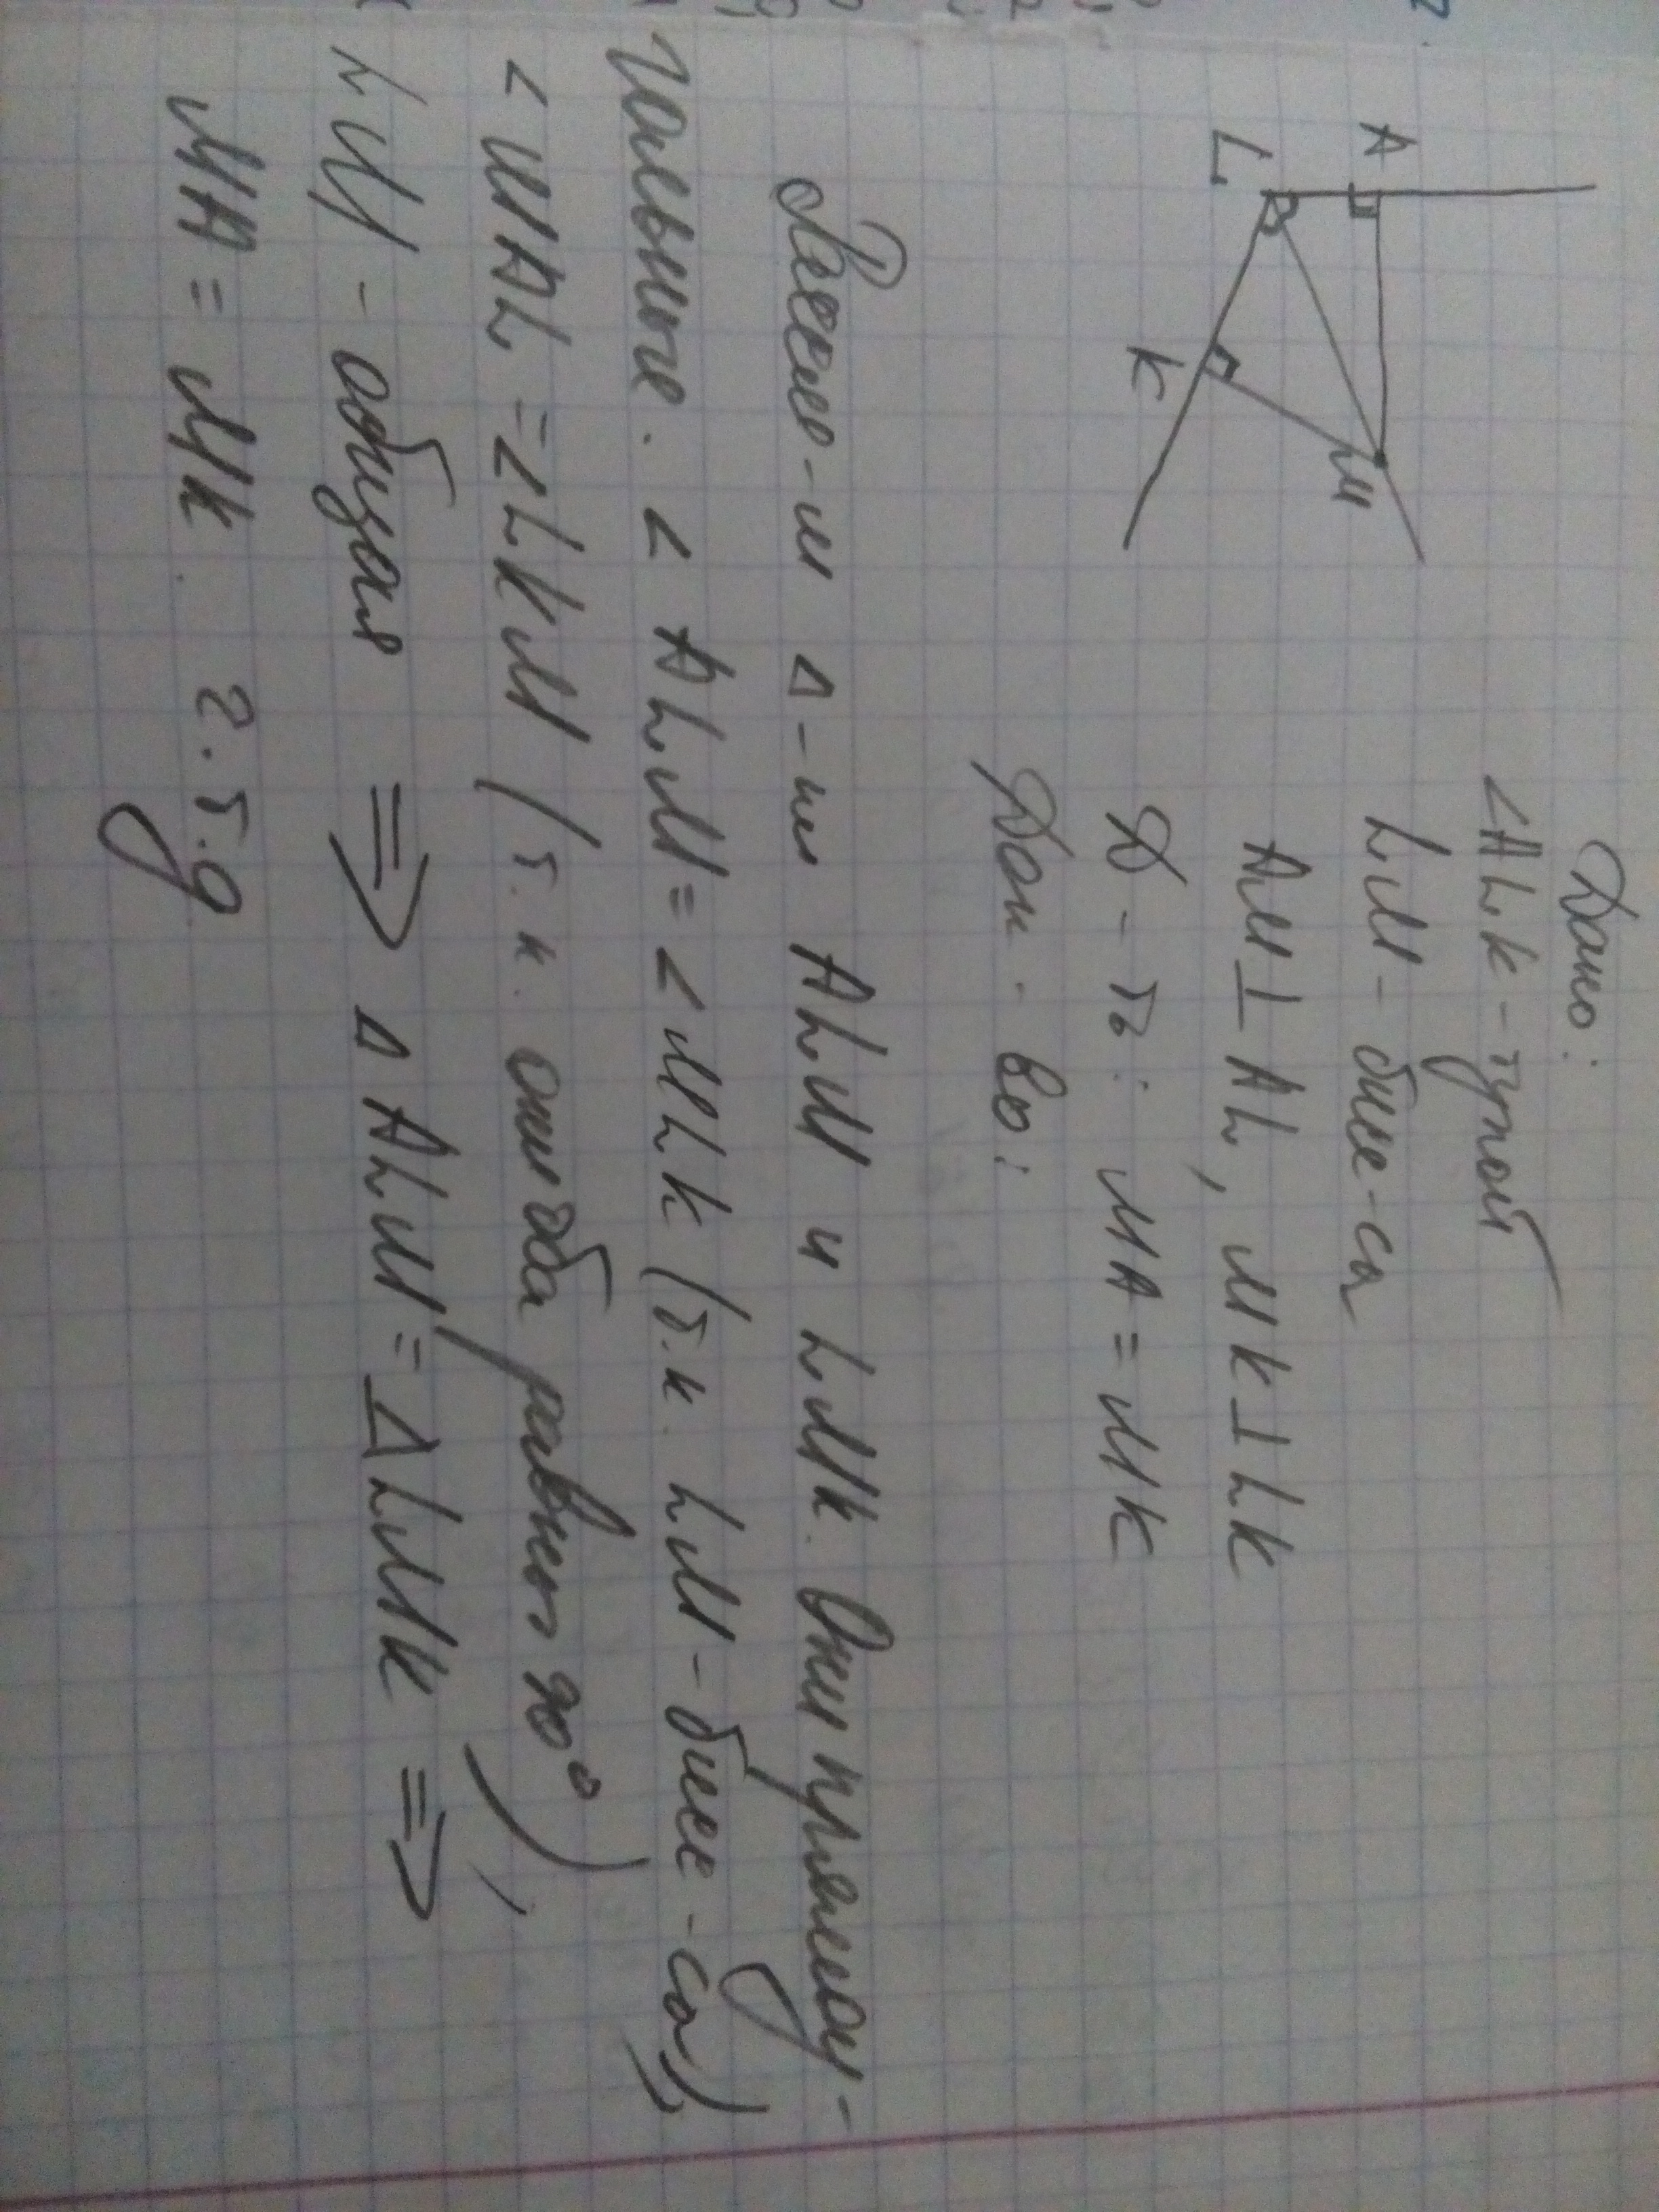 Дано:
<ALK - тупой
LM - бисс-са
AM ⊥ AL, MK ⊥ LK
Д-ть: MA = MK
Док-во:
A
L
K
M
Рассм-м Δ-ки ALM и LMK. Они прямоу-
гольные. < ALM = < MLK (т.к. LM - бисс-са),
< MAL = < LKM (т.к. они оба равны 90°),
LM - общая ⇒ Δ ALM = Δ LMK ⇒
MA = MK. г.т.д